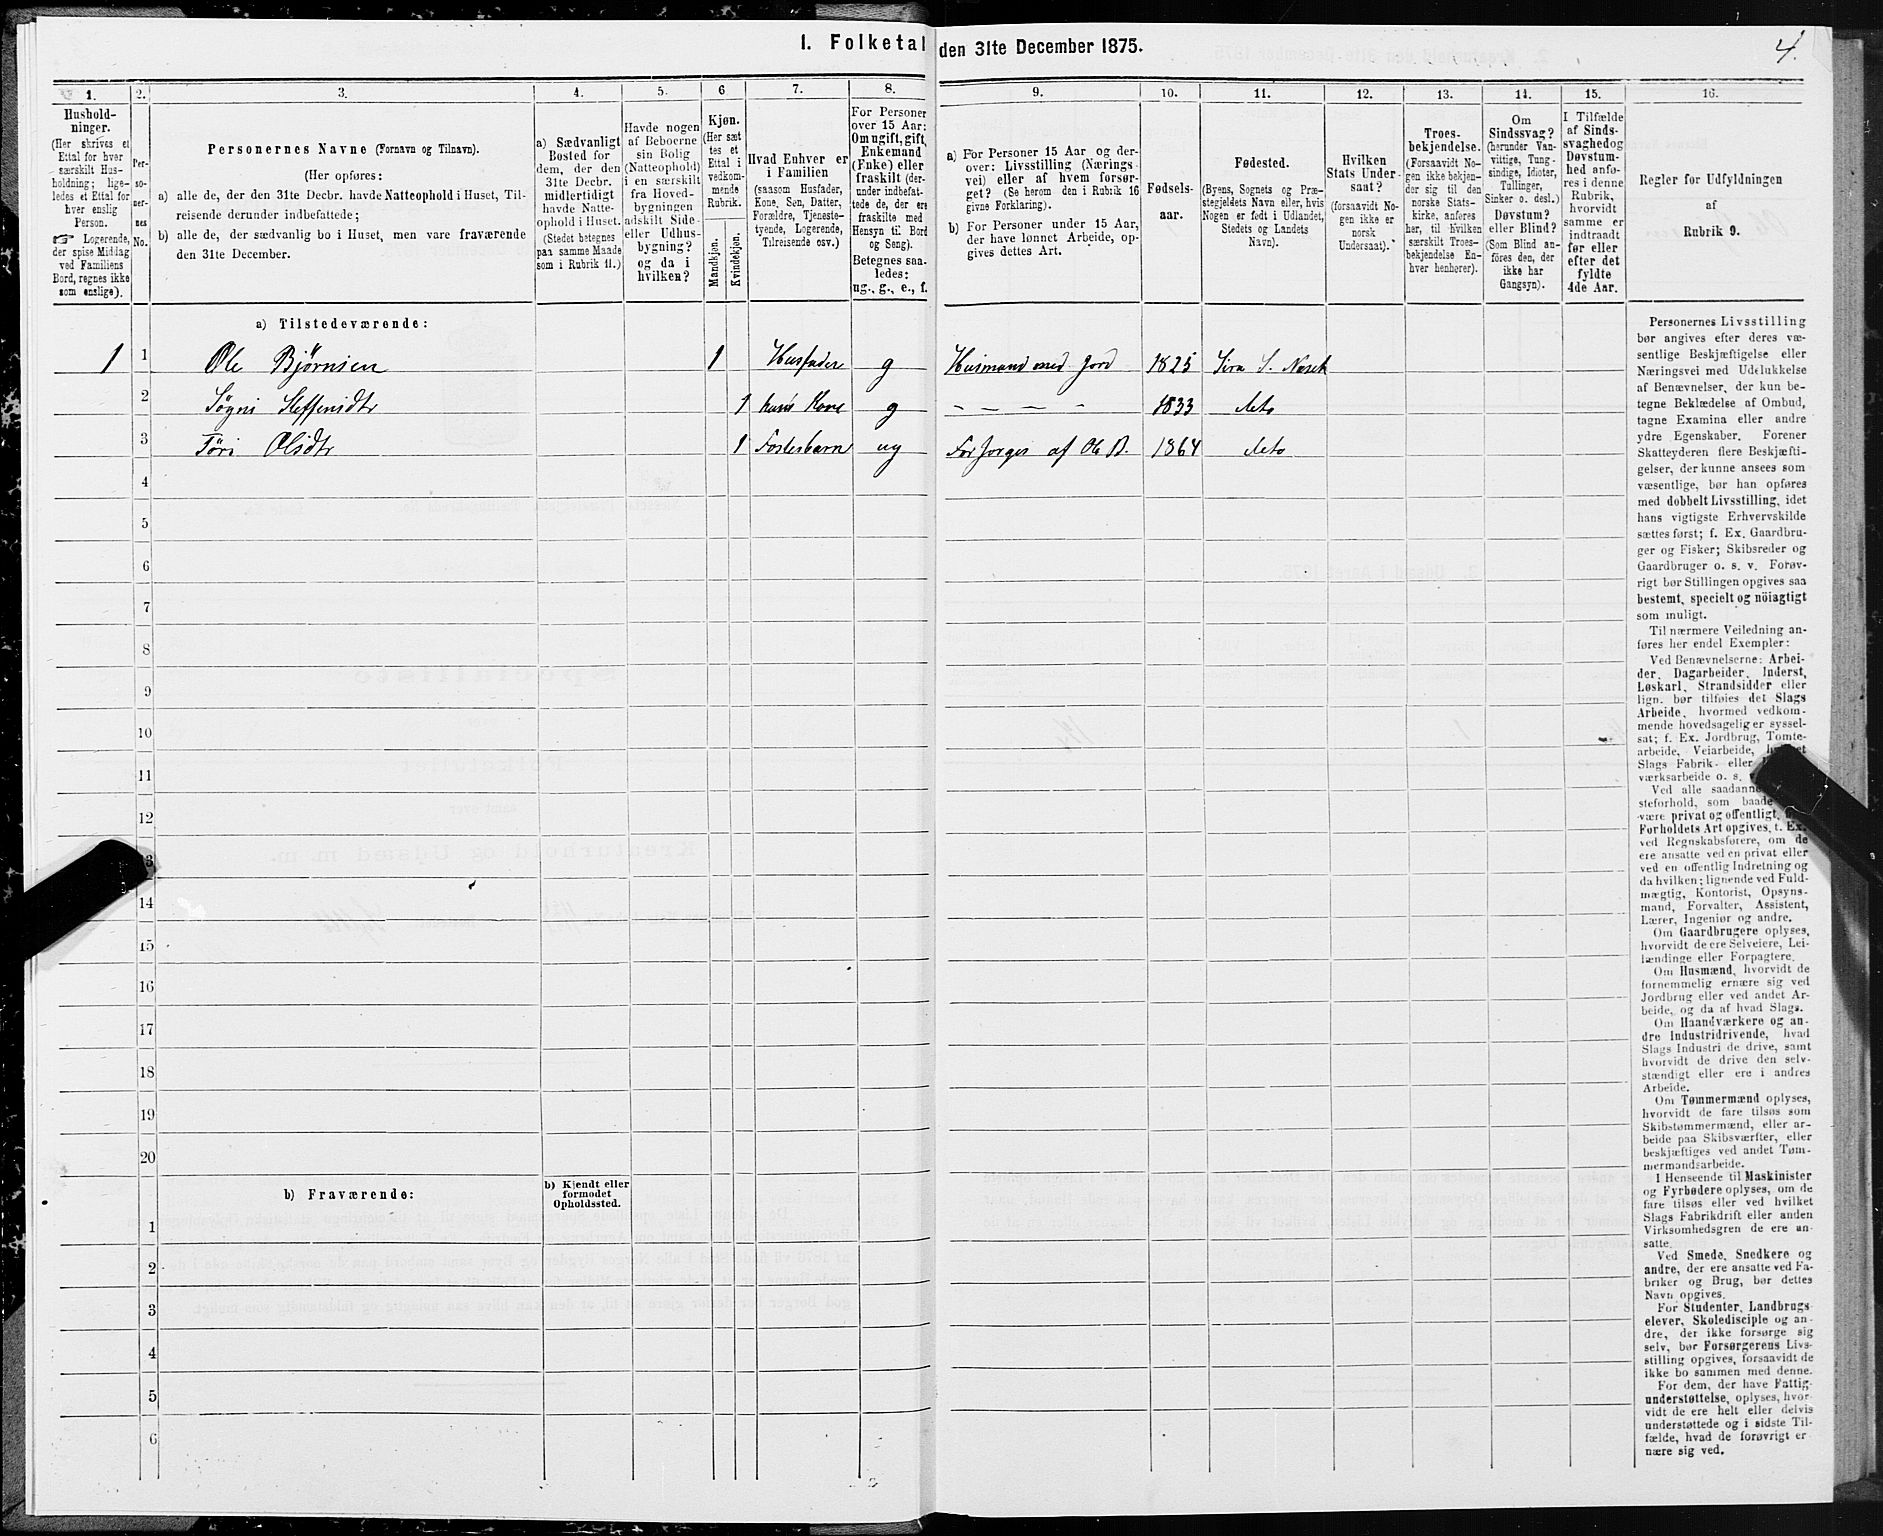 1. Folketal den 31te December 1875.
4.
1. 2. 3. 4. 5. 6 7. 8. 9. 10. 11. 12. 13. 14. 15. 16.
Hushold-
ninger.
(Her skrives et
Ettal for hver
særskilt Hus-
holdning; lige-
ledes et Ettal for
hver enslig
Person.
☞ Logerende,
der spise Middag
ved Familiens
Bord, regnes ikke
som enslige).
Per-
so-
ner-
nes
No.
Personernes Navne (Fornavn og Tilnavn).
(Her opføres:
a) alle de, der den 31te Decbr. havde Natteophold i Huset, Til-
reisende derunder indbefattede;
b) alle de, der sædvanlig bo i Huset, men vare fraværende
den 31te December.
a) Sædvanligt
Bosted for
dem, der den
31te Decbr.
midlertidigt
havde Natte-
ophold i Huset.
(Stedet betegnes
paa samme Maade
som i Rubrik 11.)
Havde nogen
af Beboerne
sin Bolig
(Natteophold)
i en særskilt
fra Hoved-
bygningen
adskilt Side-
eller Udhus-
bygning?
og da i
hvilken?
Kjøn.
(Her sæt
tes et
Ettal i
vedkom-
mende
Rubrik.
Mandkjøn.
Kvindekjøn.
Hvad Enhver er
i Familien
(saasom Husfader,
Kone, Søn, Datter,
Forældre, Tjeneste-
tyende, Logerende,
Tilreisende osv.)
For Personer
over 15 Aar:
Om ugift, gift,
Enkemand
(Enke) eller
fraskilt (der-
under indbefat-
tede de, der ere
fraskilte med
Hensyn til Bord
og Seng).
Betegnes saa-
ledes:
ug., g., e., f.
a) For Personer 15 Aar og der-
over: Livsstilling (Nærings
vei) eller af hvem forsør-
get? (Se herom den i Rubrik 16
givne Forklaring).
b) For Personer under 15 Aar,
der have lønnet Arbeide, op-
gives dettes Art.
Fødsels-
aar.
Fødested.
(Byens, Sognets og Præ-
stegjeldets Navn eller, hvis
Nogen er født i Udlandet,
Stedets og Landets
Navn).
Hvilken
Stats Under-
saat?
(forsaavidt No-
gen ikke er
norsk
Undersaat).
Troes-
bekjendelse.
(Forsaavidt No-
gen ikke bekjen-
der sig til den
norske Stats-
kirke, anføres
her, til hvilken
særskilt Troes-
bekjendelse En-
hver henhører).
Om
Sindssvag?
(herunder Van-
vittige, Tung-
sindige, Idioter,
Tullinger,
Sinker o. desl.)
Døvstum?
eller Blind?
(Som Blind an-
føres den, der
ikke har
Gangsyn).
I Tilfælde
af Sinds-
svaghed og
Døvstum-
hed anfø-
res i denne
Rubrik,
hvorvidt
samme er
indtraadt
før eller
efter det
fyldte
4de Aar.
Regler for Udfyldningen
af
Rubrik 9.
a) Tilstedeværende:
1 1 Ole Bjørnsen 1 Husfader g Husmand med Jord 1825 Sira S. Næsets
2 Søgni Steffensdtr 1 hans Kone g - - - - 1833 deto
3 Tøri Olsdtr 1 Fosterbarn ug Forsørges af Ole B. 1864 deto
4
5
6
7
8
9
10
11
12
3
14
15
16
17
18
19
20
b) Fraværende:
b) Kjendt eller
formodet
Opholdssted.
1
2
3
4
5
6
Personernes Livsstilling
bør angives efter deres væ-
sentlige Beskjæftigelse eller
Næringsvei med Udelukkelse
af Benævnelser, der kun be-
tegne Beklædelse af Ombud,
tagne Examina eller andre
ydre Egenskaber. Forener
Skatteyderen flere Beskjæfti-
gelser, der kunne ansees som
væsentlige, bør han opføres
med dobbelt Livsstilling, idet
hans vigtigste Erhvervskilde
sættes først; f. Ex. Gaardbru-
ger og Fisker; Skibsreder og
Gaardbruger o. s. v. Forøv-
rigt bør Stillingen opgives saa
bestemt, specielt og nöiagtigt
som muligt.
Til nærmere Veiledning an-
føres her endel Exempler:
Ved Benævnelserne: Arbei-
der, Dagarbeider, Inderst,
Løskarl, Strandsidder eller
lign. bør tilføies det Slags
Arbeide, hvormed vedkom-
mende hovedsagelig er syssel-
sat; f. Ex. Jordbrug, Tomte-
arbeide, Veiarbeide,
Slags Fabrik- eller
værksarbeide o. s.
Ved alle saadanne
steforhold, som baade
være privat og offentligt,
Forholdets Art opgives, f. Ex.
ved Regnskabsførere, om de
ere ansatte ved en privat eller
ved en offentlig Indretning og
da hvilken; lignende ved Fuld-
mægtig, Kontorist, Opsyns-
mand, Forvalter, Assistent,
Lærer, Ingeniør og andre.
Om Gaardbrugere oplyses,
hvorvidt de ere Selveiere, Lei-
lændinge eller Forpagtere.
Om Husmænd, hvorvidt de
fornemmelig ernære sig ved
Jordbrug eller ved andet Ar-
beide, og da af hvad Slags.
Om Haandværkere og an-
dre Industridrivende, hvad
Slags Industri de drive, samt
hvorvidt de drive den selv-
stændigt eller ere i andres
Arbeide.
Om Tømmermænd oplyses,
hvorvidt de fare tilsøs som
Skibstømmermænd, eller ar-
beide paa Skibsværfter, eller
beskjæftiges ved andet Tøm-
mermandsarbeide.
I Henseende til Maskinister
og Fyrbødere oplyses, om de
fare tilsøs eller ved hvilket
Slags Fabrikdrift eller anden
Virksomhedsgren de ere an-
satte.
Ved Smede, Snedkere og
andre, der ere ansatte ved Fa-
briker og Brug, bør dettes
Navn opgives.
For Studenter, Landbrugs-
elever, Skoledisciple og an-
dre, der ikke forsørge sig
selv, bør Forsørgerens Livs-
stilling opgives, forsaavidt de
ikke bo sammen med denne.
For dem, der have Fattig-
understøttelse, oplyses, hvor-
vidt de ere helt eller delvis
understøttede og i sidste Til-
fælde, hvad de forøvrigt er-
nære sig ved.